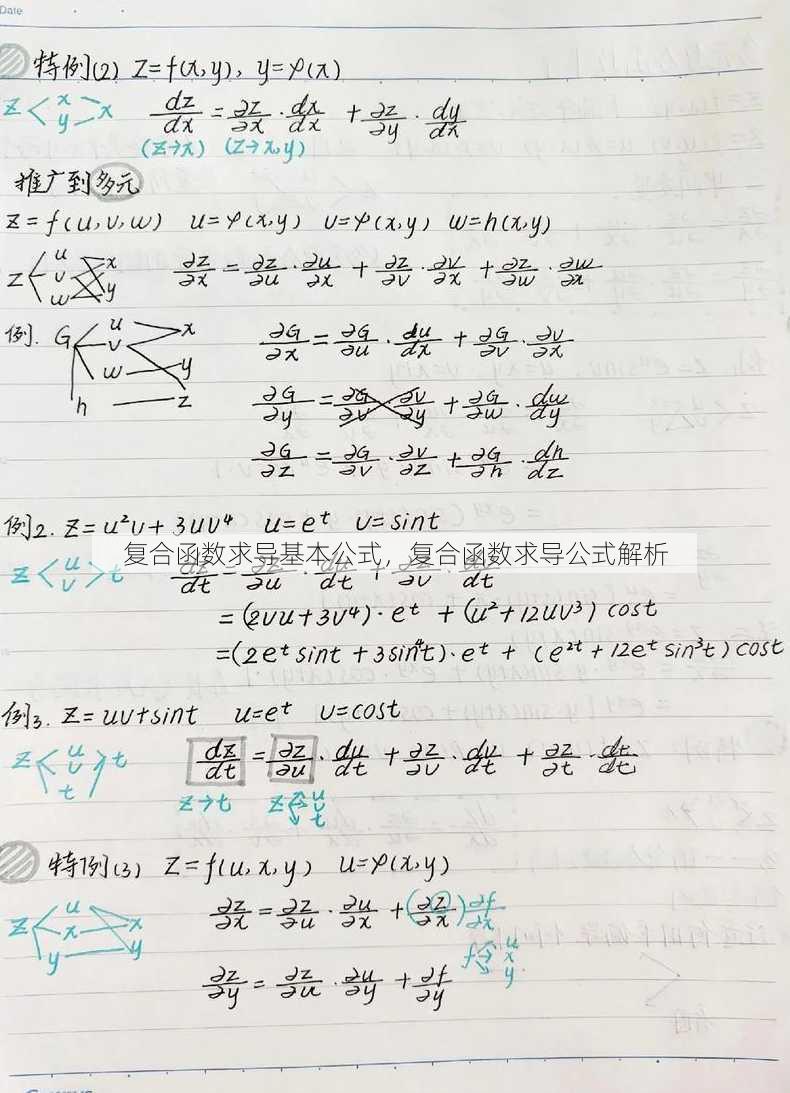 Date
特例(2) Z=f(x,y), y=φ(x)
Z x y x dz/dx = ∂z/∂x · dx/dx + ∂z/∂y · dy/dx
(Z→x) (Z→x,y)
推广到多元
Z=f(u,v,w) u=φ(x,y) v=φ(x,y) w=h(x,y)
Z u v w x y ∂z/∂x = ∂z/∂u · ∂u/∂x + ∂z/∂v · ∂v/∂x + ∂z/∂w · ∂w/∂x
例. G u v w h x y z ∂G/∂x = ∂G/∂u · du/dx + ∂G/∂v · ∂v/∂x
∂G/∂y = ∂G/∂v · ∂v/∂y + ∂G/∂w · dw/dy
∂G/∂z = ∂G/∂v · ∂v/∂z + ∂G/∂h · dh/dz
例2. Z=u²v+3uv⁴ u=eᵗ v=sint
复合函数求导基本公式，复合函数求导公式解析
Z u v t dz/dt = ∂z/∂u · du/dt + ∂z/∂v · dv/dt
=(2vu+3v⁴)·eᵗ+(u²+12uv³)cost
=(2eᵗsint+3sin⁴t)·eᵗ+(e²ᵗ+12eᵗsin³t)cost
例3. Z=uv+sint u=eᵗ v=cost
Z u v t t dz/dt = ∂z/∂u · du/dt + ∂z/∂v · dv/dt + ∂z/∂t · dt/dt
Z→t Z u v t
特例(3) Z=f(u,x,y) u=φ(x,y)
Z u x y x y ∂z/∂x = ∂z/∂u · ∂u/∂x + (∂z/∂x) ∂f/∂x
f u x y
∂z/∂y = ∂z/∂u · ∂u/∂y + ∂f/∂y